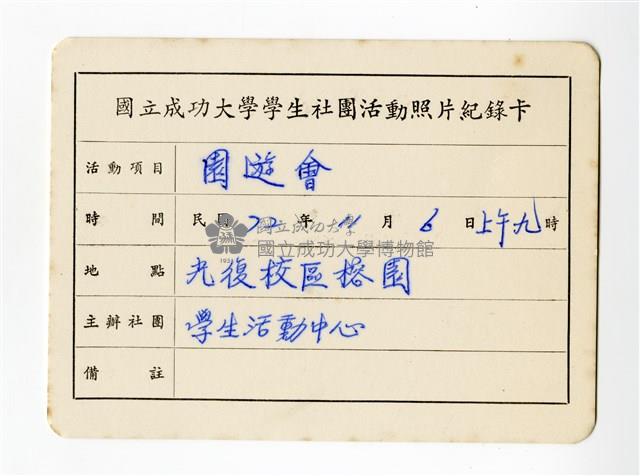 國立成功大學學生社團活動照片紀錄卡
活動項目 園遊會
時間 民國72年11月6日上午九時
國立成功大學
國立成功大學博物館
1931
地點 光復校區榕園
主辦社團 學生活動中心
備註